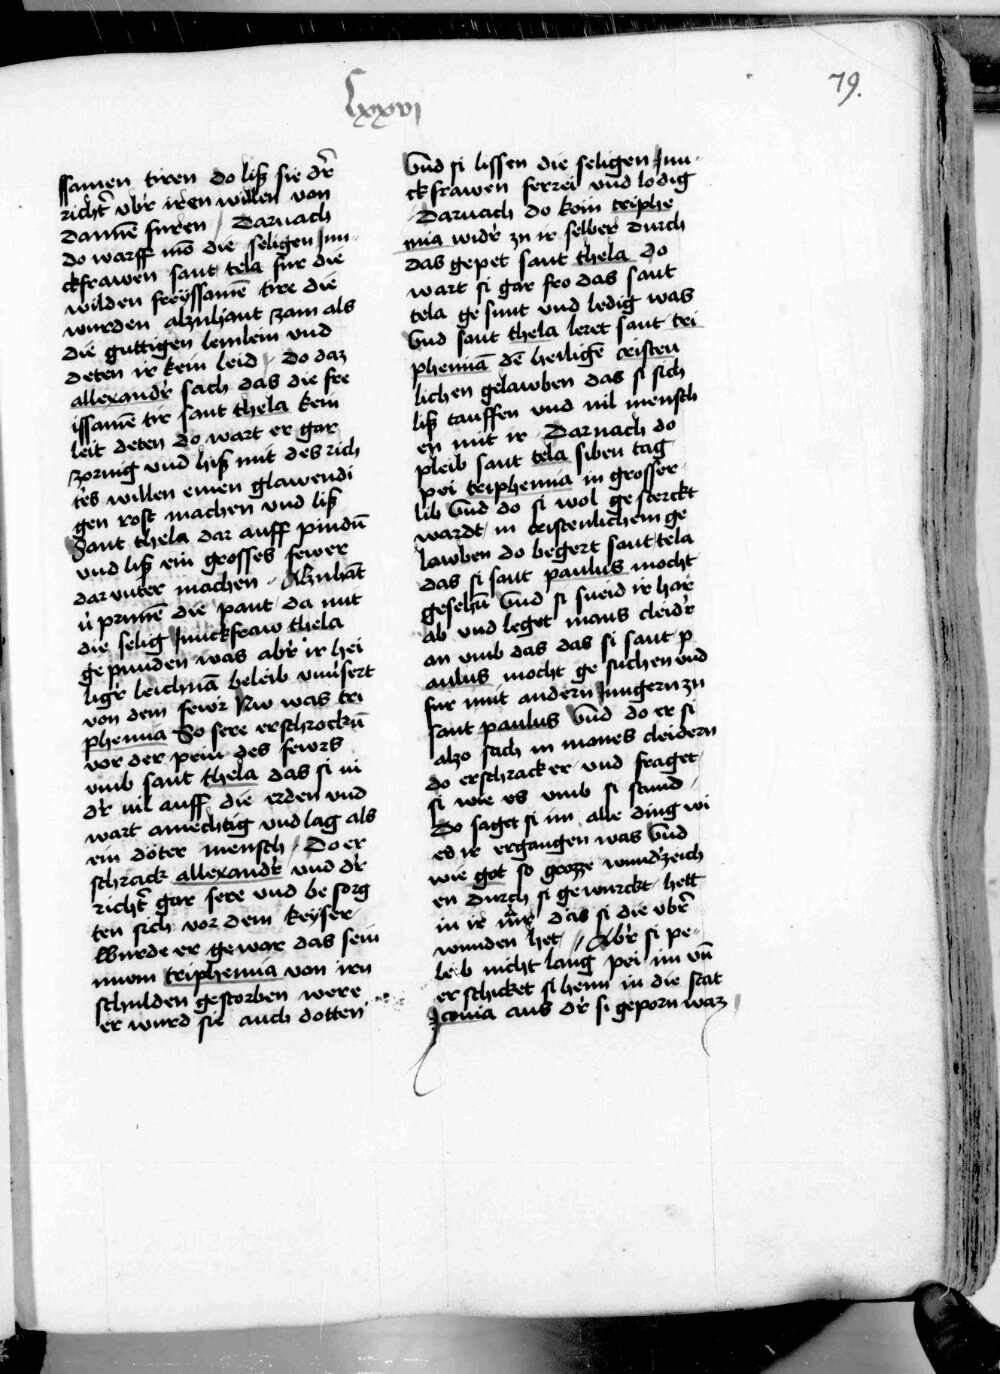 Lxxvi
79.
ssamen tiren do liß sie dr̄
richt̄ vbr̄ iren willen von
dannē furen / Darnach
do warff mō die seligen Jun-
ckfrawen sant tela fur die
wilden freÿssamē tire die
wurden alzuhant zam als
die guttigen lemlein vnd
deten ir kein leid / Do daz
allexandr̄ sach das die fre
issamē tir sant thela kein
leit deten do wart er gar
zornig vnd hiß mit des rich
t̄es willen einen glawendi
gen rost machen vnd liß
Sant thela dar auff pindū
vnd liß ein grosses fewer
dar vnter machen / Alzuhāt
v̇ prinnē die pant da mit
die selig Junckfraw thela
ge punden was abr̄ ir hei
ligr̄ leichnā beleib vnu̇sert
von dem fewr̄ Nw was tri
phenia So sere erschrockū
vor der pein des fewrs
vmb sant thela das si ni
dr̄ uil auff die erden vnd
wart amechtig vnd lag als
ein doter mensch / Do er
schrack allexandr̄ vnd dr̄
richt̄ gar sere vnd be sorg
ten sich vor dem keyser
Wurde er gewar das sein
mum triphenia von irn
schulden gestorben were
er wurd sie auch dotten
Vnd si lissen die seligen Jun-
ckfrawen ferrei vnd lodig
Darnach do kom triphe
nia widr̄ zu ir selber durch
das gepet sant thela do
wart si gar fro das sant
tela ge sunt vnd ledig was
Vnd sant thela leret sant tri
pheniā dē heiligē cristen
lichen gelawben das si sich
liß tauffen vnd uil mensch
en mit ir Darnach do
pleib sant tela siben tag
pei triphenia in grosser
lib Vnd do si wol gesterckt
wardt in cristenlichem ge
lawben do begert sant tela
das si sant paulus mocht
gesehū Vnd si sneid ir har
ab vnd leget mans cleidr̄
an vmb das das si sant p
aulus mocht ge suchen vnd
fur mit andern Jungern zu
sant paulus Vnd do er si
also sach in mones cleidern
do erschrack er vnd fraget
si wie es vmb si stund
Do saget si im alle ding wi
es ir ergangen was Vnd
wie got so grozze wundr̄zeich
en durch si gewurckt hett
in ir das si die vbr̄
wunden het // Abr̄ si pe-
leib nicht lang pei im vn̄
er schicket si heim in die stat
Jconia aus dr̄ si geporn waz